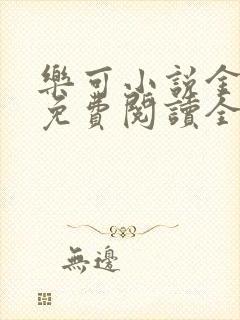 樂可小說全
免費閱讀全
無邊